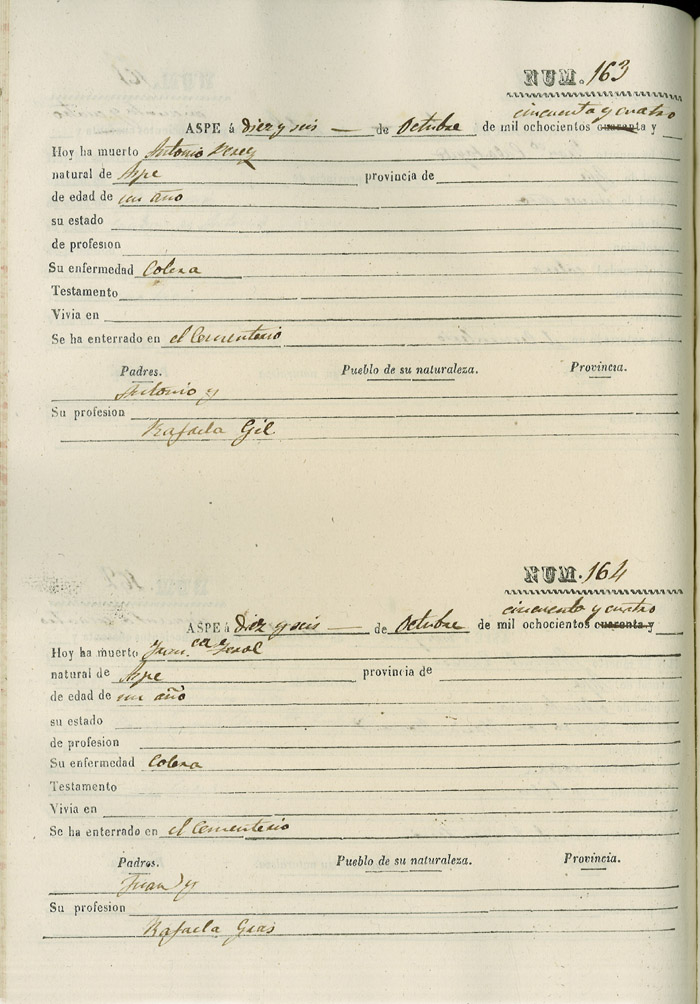 NUM. 163
cincuenta y cuatro
ASPE á diez y seis de Octubre de mil ochocientos cuarenta y
Hoy ha muerto Antonio Perez
natural de Aspe provincia de
de edad de un año
su estado
de profesion
Su enfermedad Colera
Testamento
Vivia en
Se ha enterrado en el Cementerio
Padres. Pueblo de su naturaleza. Provincia.
Antonio y
Su profesion
Rafaela Gil
NUM. 164
cincuenta y cuatro
ASPE á diez y seis de Octubre de mil ochocientos cuarenta y
Hoy ha muerto
natural de Aspe provincia de
de edad de un año
su estado
de profesion
Su enfermedad Colera
Testamento
Vivia en
Se ha enterrado en el Cementerio
Padres. Pueblo de su naturaleza. Provincia.
Juan y
Su profesion
Rafaela Gras